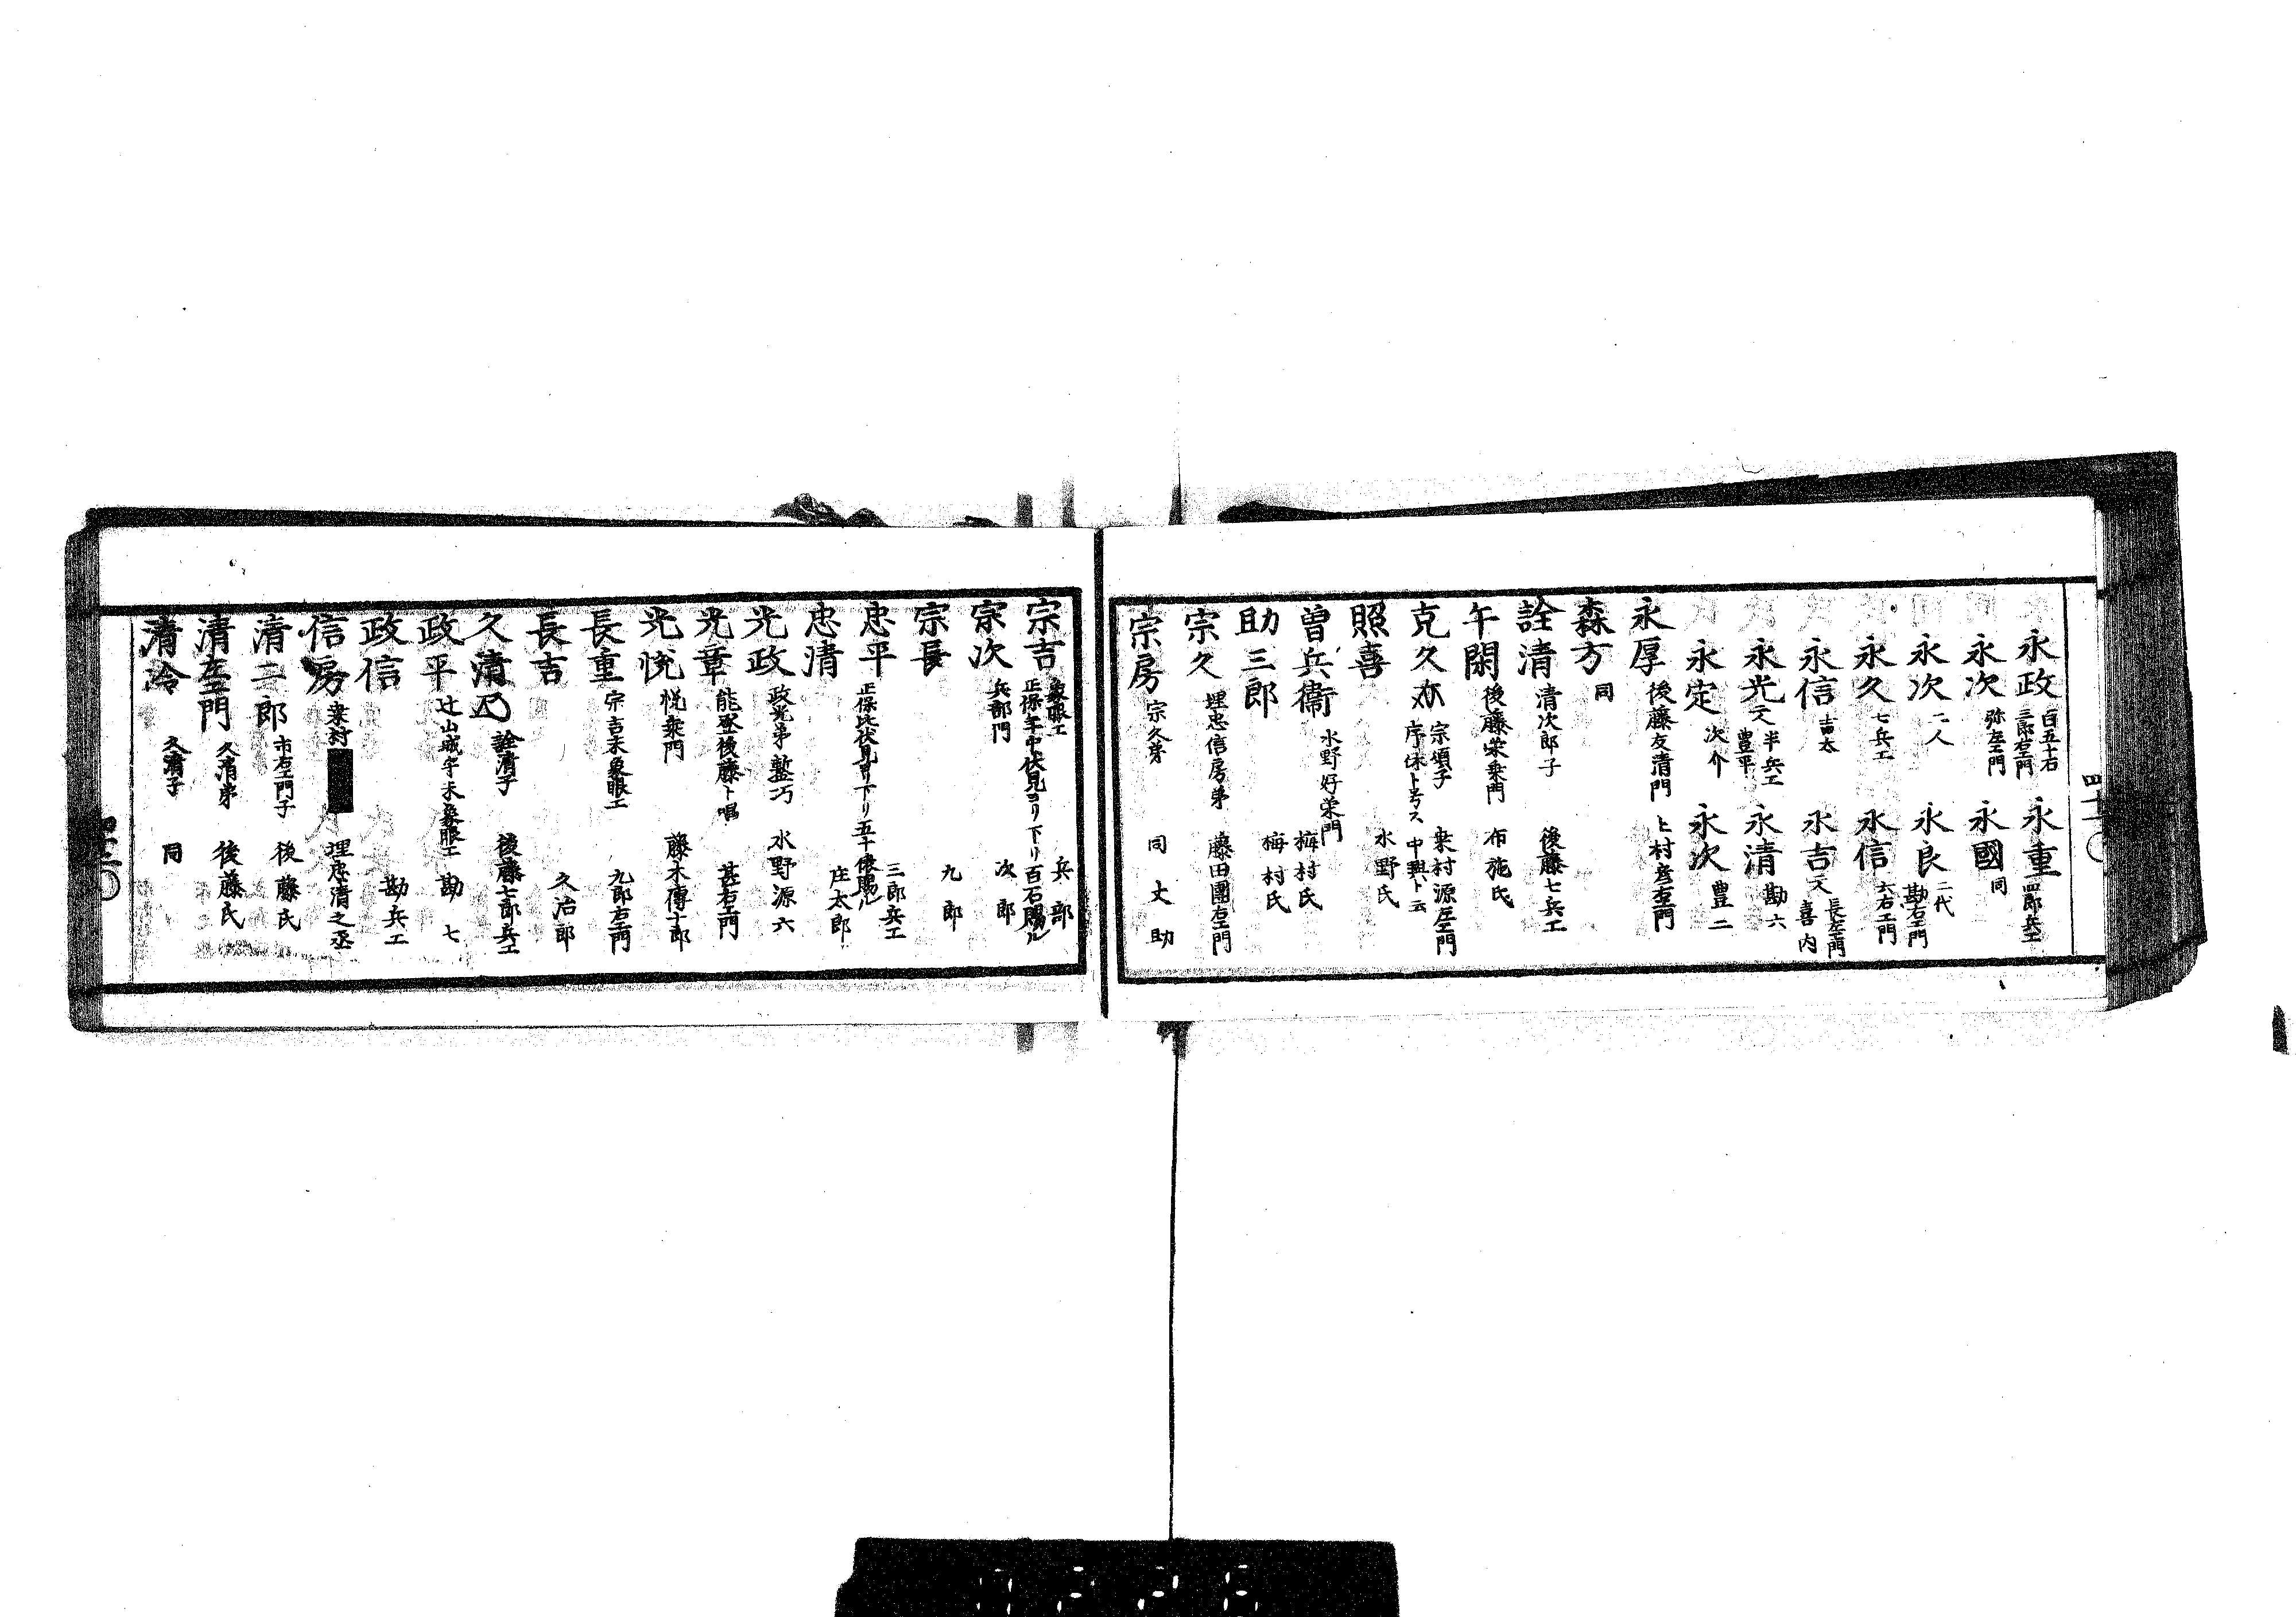 永政 百五十石 三郎右エ門 永重 四郎兵エ
永次 弥左エ門 永國 同
永次 二人 永良 二代 勘右エ門
永久 七兵エ 永信 六右エ門
永信 吉太 永吉 又 長左エ門 喜内
永光 又 半兵エ 豊平 永清 勘六
永定 次介 永次 豊二
永厚 後藤友清門 上村彦右エ門
森方 同
詮清 清次郎子 後藤七兵エ
午閑 後藤栄乗門 布施氏
克久 亦 宗頭子 序休ト号ス 中興ト云 乗村源左エ門
照喜 水野氏
曽兵衞 水野好栄門 梅村氏
助三郎 梅村氏
宗久 埋忠信房弟 藤田團右エ門
宗房 宗久弟 同丈助
四十一
宗吉 象眼工 正保年中伏見ヨリ下リ百石賜ル 兵部
宗次 兵部門 次郎
宗長 九郎
忠平 正保比伏見ヨリ下リ五十俵賜ル 三郎兵エ
忠清 庄太郎
光政 政光弟 整巧 水野源六
光章 能登後藤ト唱 甚右エ門
光悦 悦乗門 藤木傳十郎
長重 宗吉末象眼工 九郎右エ門
長吉 久治郎
久清 乃 詮清子 後藤七郎兵エ
政平 辻山城守末象眼工 勘七
政信 勘兵エ
信房 乗村 埋忠清之丞
清二郎 市右エ門子 後藤氏
清左エ門 久清弟 後藤氏
清冷 久清子 同